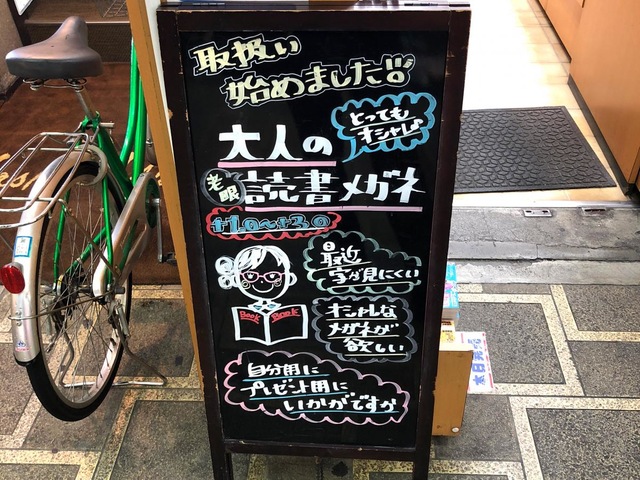 取扱い
始めました
とっても
オシャレ♪
大人の
老眼
読書メガネ
+1.0〜+3.0
最近
字が見にくい
Book Book
オシャレな
メガネが
欲しい
自分用に
プレゼント用に
いかがですか
本日発売